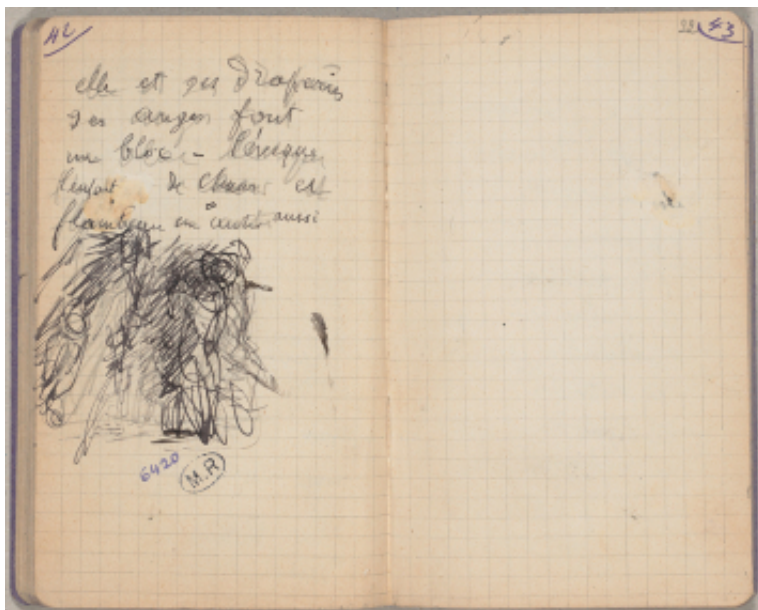 42
elle et ses draperies
ses anges font
un bloc - l'évêque
l'enfant de chœur est
flambeau en aussi
6420
M.R
43